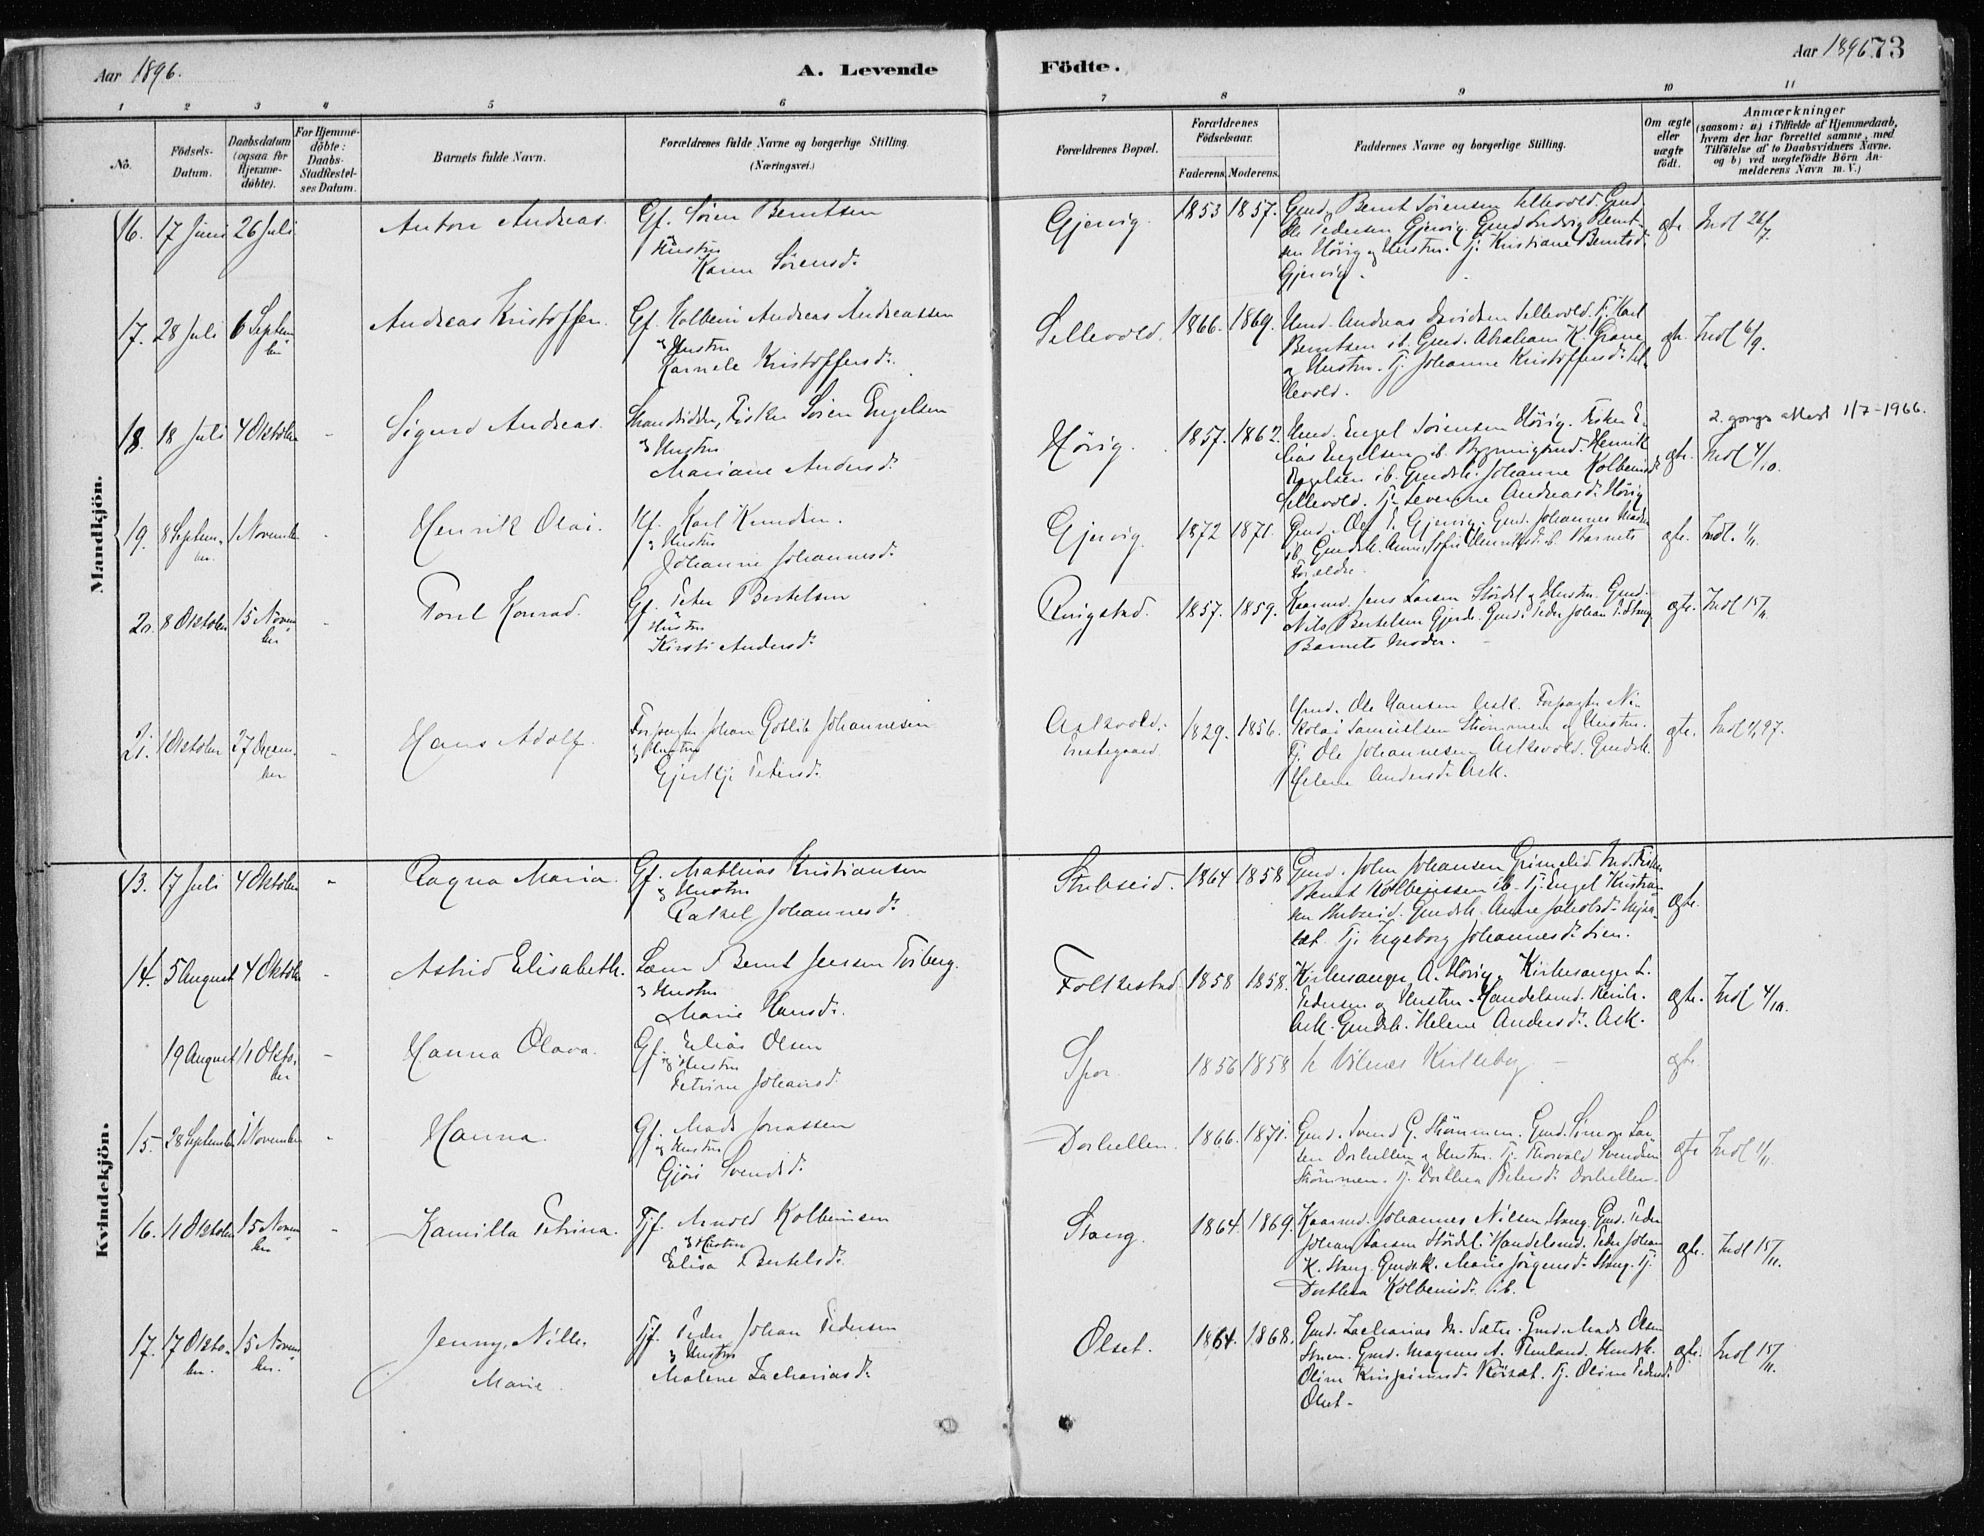 Aar 1896.
A. Levende Födte.
Aar 1896. 73
1 2 3 4 5 6 7 8 9 10 11
No.
Födsels-
Datum.
Daabsdatum
(ogsaa for
Hjemme-
döbte).
For Hjemme-
döbte:
Daabs-
Stadfestel-
ses Datum.
Barnets fulde Navn.
Forældrenes fulde Navne og borgerlige Stilling.
(Næringsvei.)
Forældrenes Bopæl.
Forældrenes
Födselsaar.
Faderens. Moderens.
Faddernes Navne og borgerlige Stilling.
Om ægte
eller
uægte
födt.
Anmærkninger
(saasom: a) i Tilfælde af Hjemmedaab,
hvem der har forrettet samme, med
Tilföielse af to Daabsvidners Navne.
og b) ved uægtefödte Börn An-
melderens Navn m. V.)
Mandkjön.
16. 17 Juni 26 Juli Anton Andreas. Gf. Sören Berntsen
og Hustru
Karen Sörensd.
Gjervig. 1853 1857. Gmd. Bernt Sörensen Sellevold. Gmd.
Ole Pedersen Gjervig. Gmd Ludvig Bernt-
sen Hörig og Hustru. Tj. Kristiane Berntsd.
Gjervig.
gte Indl 26/7.
17. 28 Juli 6 Septem-
ber Andreas Kristoffer. Gf. Kolbein Andreas Andreassen
og Hustru
Kornele Kristoffersd.
Sellevold. 1866. 1869. Andreas Davidsen Sellevold. Tj. Karl
Berntsen ib. Gmd. Abraham K. Grane
og Hustru. Tj. Johanne Kristoffersd. Sel-
levold.
gte. Indl 6/9.
18. 18 Juli 4 Oktober - Sigurd Andreas. Strandsidder, Fisker Sören Engelsen
og Hustru
Mariane Andersd.
Hörig. 1857. 1862. Engel Sörensen Hörig. Fisker E-
lias Engelsen ib. Henrik
Engelsen ib. Gmdsk. Johanne Kolbeinsd.
Sellevold. Tj. Severine Andreasd. Hörig
gte. Indl 4/10.
2. gongs attest 1/7-1966.
19. 8 Septem-
ber. 1 November - Henrik Olai. Karl Knudsen.
og Hustru
Johanne Johannesd.
Gjervig. 1872 1871. Gmd. Ole E. Gjervig. Gmd. Johannes Madsen
ib. Gmdsk. Anne Sofie Henriksd. ib. Barnets
Forældre.
gte. Indl. 1/11.
20. 8 Oktober 15 Novem-
ber - Konrad. Gf. Peter Bertelsen
og Hustru
Kirsti Andersd.
Ringstad. 1857. 1859. Kaarmd. Jens Larsen Stördal og Hustru. Gmd.
Nils Bertelsen Gjerde. Gmd. Peder Johan P. Stang
Barnets Moder.
gte. Indl 15/11.
21. 1 Oktober 27 Decem-
ber - Hans Adolf. Forpagter Johan Gotlib Johannesen
og Hustru
Gjertje Petersd.
Askvold.
Prestegaard 1829. 1856. Gmd. Ole Hansen Ask. Forpagter Ni-
kolai Samuelsen Strömmen og Hustru.
Tj. Ole Johannesen Askvold. Gmdsk.
Helene Andersd. Ask.
gte. Indl 97.
Kvindekjön.
13. 17 Juli 4 Oktober - Ragna Maria. Gf. Mathias Kristiansen
og Hustru
Rakel Johannesd.
Stubseid. 1864 1858 Gmd. John Johansen Grimelid. Ind. Fisker
Bernt Kolbeinssen ib. Tj. Engel Kristian-
sen Stubseid. Gmdsk. Anne Jakobsd.
Tj. Ingeborg Johannesd. Lien.
gte.
14. 5 August 4 Oktober - Astrid Elisabeth. Bernt Jensen Torberg.
og Hustru
Marie Hansd.
Folkestad. 1858 1858. Kirkesanger A. Hörig. Kirkesanger L.
Pedersen og Hustru. Handelsmd. Henrik.
Ask. Gmdsk. Helene Andersd. Ask.
gte. Indl 4/10.
19 August 11 Okto-
ber - Hanna Olava. Gf. Elias Olsen
og Hustru
Petrine Johansd.
Spor. 1856 1858 Vilnes Kirkebog - gte.
15. 28 September 1 November - Hanna. Gf. Mads Jonassen
og Hustru
Gjöri Svendsd.
Dorhellen. 1866. 1871. Gmd. Svend G. Strömmen. Gmd. Simon Lar-
sen Dorhellen og Hustru. Tj. Thorvald Svendsen
Strömmen. Tj. Dorthea Petersd. Dorhellen.
gte Indl 1/11.
16. 11 Oktober 15 Novem-
ber - Kamilla Petrina. Tjf. Arnold Kolbeinsen
og Hustru
Elisa Bertelsd.
Stang. 1864. 1869. Kaarmd. Johannes Nilsen Stang. Gmd. Peder
Johan Larsen Stördal. Handelsmd. Peder Johan
K. Stang. Gmdsk. Marie Jörgensd. Stang. Tj.
Dorthea Kolbeinsd. ib.
gte. Indl 15/11.
17. 17 Okto-
ber. 15 Novem-
ber. Jenny Nille
Marie. Tjf. Peder Johan Pedersen
og Hustru
Malene Zachariasd.
Olset. 1864. 1868. Gmd. Zacharias M. Sætre. Gmd. Mads Olsen
Gmd. Magnus A.
Oline Tj. Oline Pedersd.
Olset.
gte. Indl 15/11.